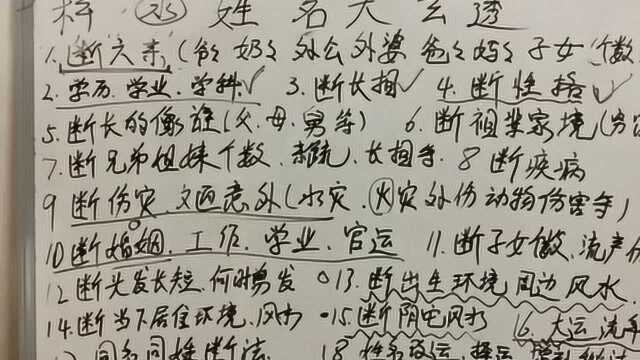 姓名大玄透
1.断六亲(爷爷奶奶外公外婆爸爸妈妈子女个数
2.学历.学业.学科✓ 3.断长相✓ 4.断性格✓
5.断长的像谁(父.母.舅等) 6.断祖辈家境(
7.断兄弟姐妹个数. 长相等. 8断疾病
9断伤灾. 意外(水灾.火灾外伤动物伤害等)
10断婚姻.工作.学业.官运 11.断子女个数.流产
12断头发长短.何时剪发 13.断出生环境周边风水
14.断当下居住环境.风水 15.断阴宅风水 16.大运流年
同名同姓断法 18